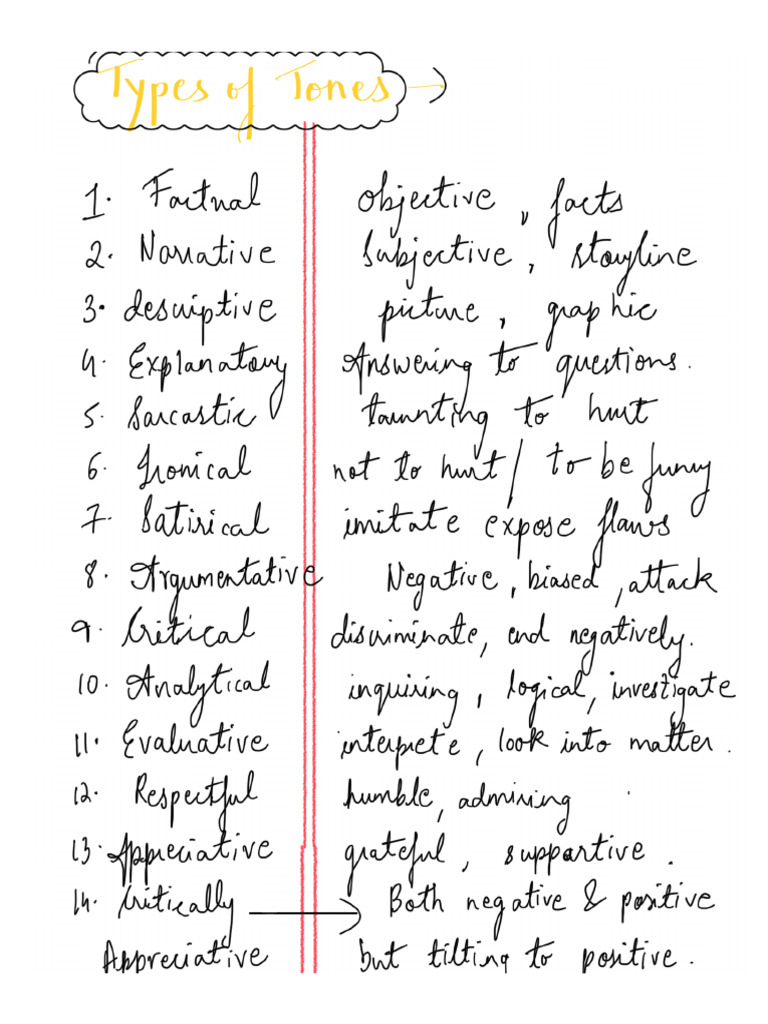 Types of Tones →
1. Factual objective, facts
2. Narrative Subjective, storyline
3. descriptive picture, graphic
4. Explanatory Answering to questions.
5. Sarcastic taunting to hurt
6. Ironical not to hurt / to be funny
7. Satirical imitate expose flaws
8. Argumentative Negative, biased, attack
9. Critical discriminate, end negatively.
10. Analytical inquiring, logical, investigate
11. Evaluative interprete, look into matter.
12. Respectful humble, admiring
13. Appreciative grateful, supportive.
14. Critically → Both negative & positive
Appreciative but tilting to positive.